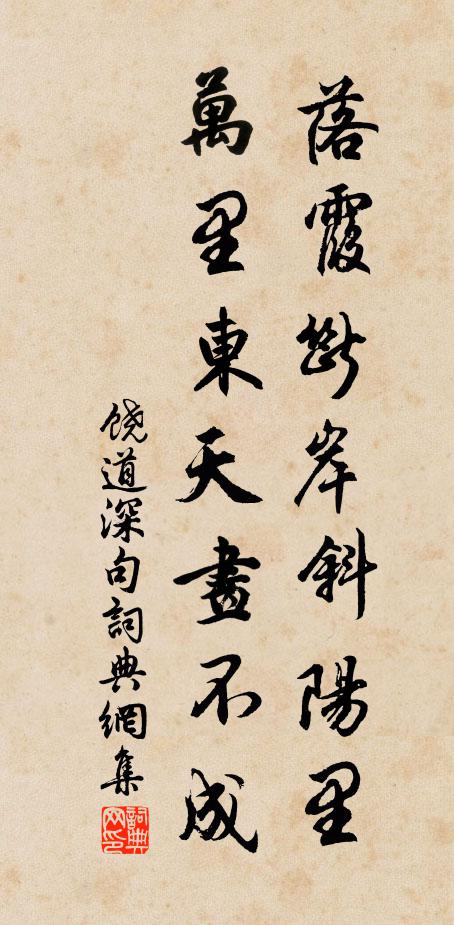 落霞斷岸斜陽里
萬里東天畫不成
饶道深句詞典網集
詞典網印